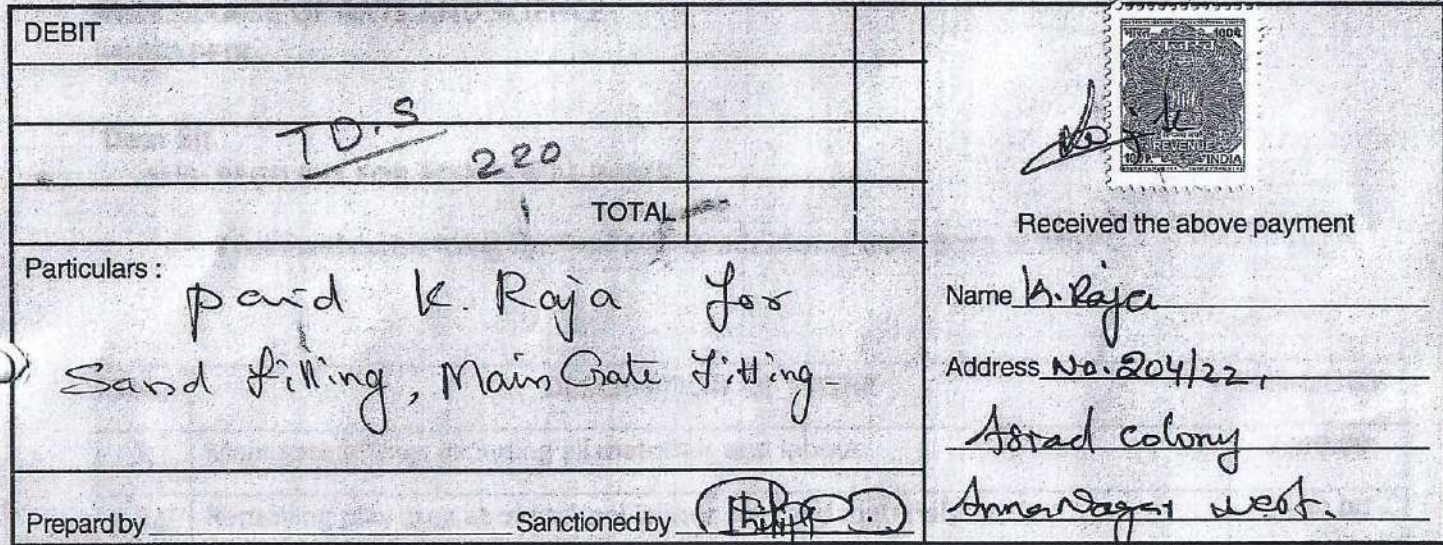 DEBIT
TD.S
220
TOTAL
Particulars :
paid K. Raja for
Sand filling, Main Gate Fitting-
Prepard by
Sanctioned by
भारत 100 P.
REVENUE
100 P. INDIA
Received the above payment
Name K. Raja
Address No. 204/22,
colony
Anna Nagar West.